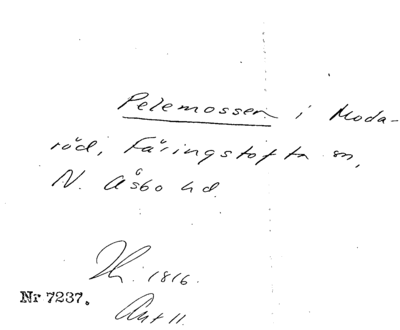 Pelemossen i Moda-
röd, Färingstofta sn,
N. Åsbo hd.
1816.
Nr 7237.
Ant 11.